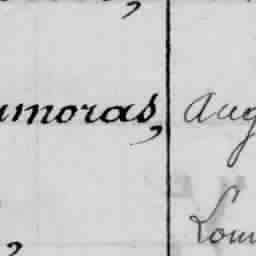 umoras, Aug
Loui